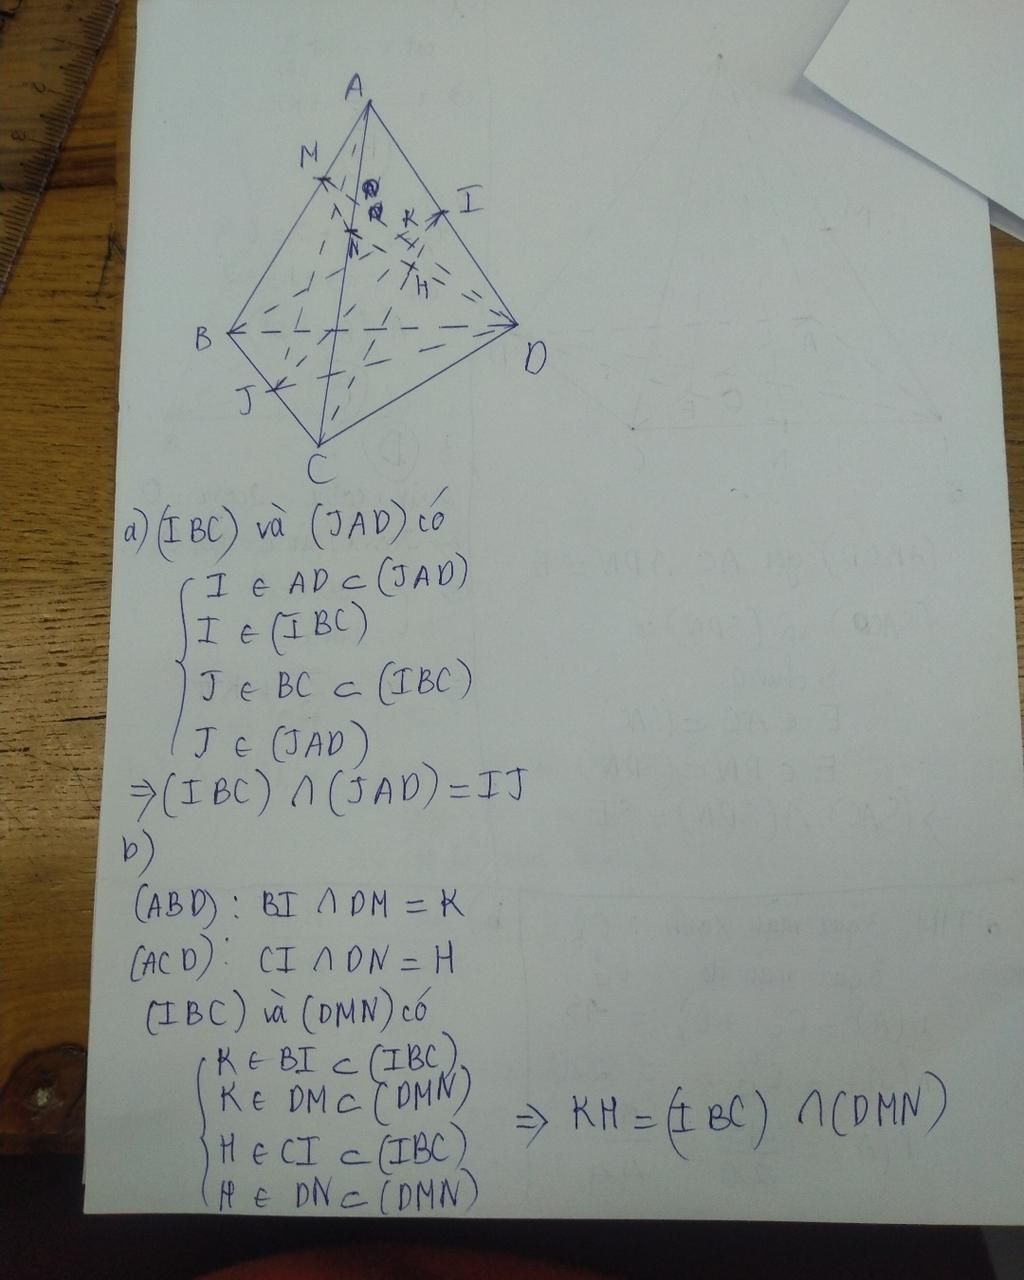 A
M
I
K
N
H
B
D
J
C
a) (IBC) và (JAD) có
I ∈ AD ⊂ (JAD)
I ∈ (IBC)
J ∈ BC ⊂ (IBC)
J ∈ (JAD)
⇒ (IBC) ∩ (JAD) = IJ
b)
(ABD): BI ∩ DM = K
(ACD): CI ∩ DN = H
(IBC) và (DMN) có
K ∈ BI ⊂ (IBC)
K ∈ DM ⊂ (DMN)
H ∈ CI ⊂ (IBC)
H ∈ DN ⊂ (DMN)
⇒ KH = (IBC) ∩ (DMN)